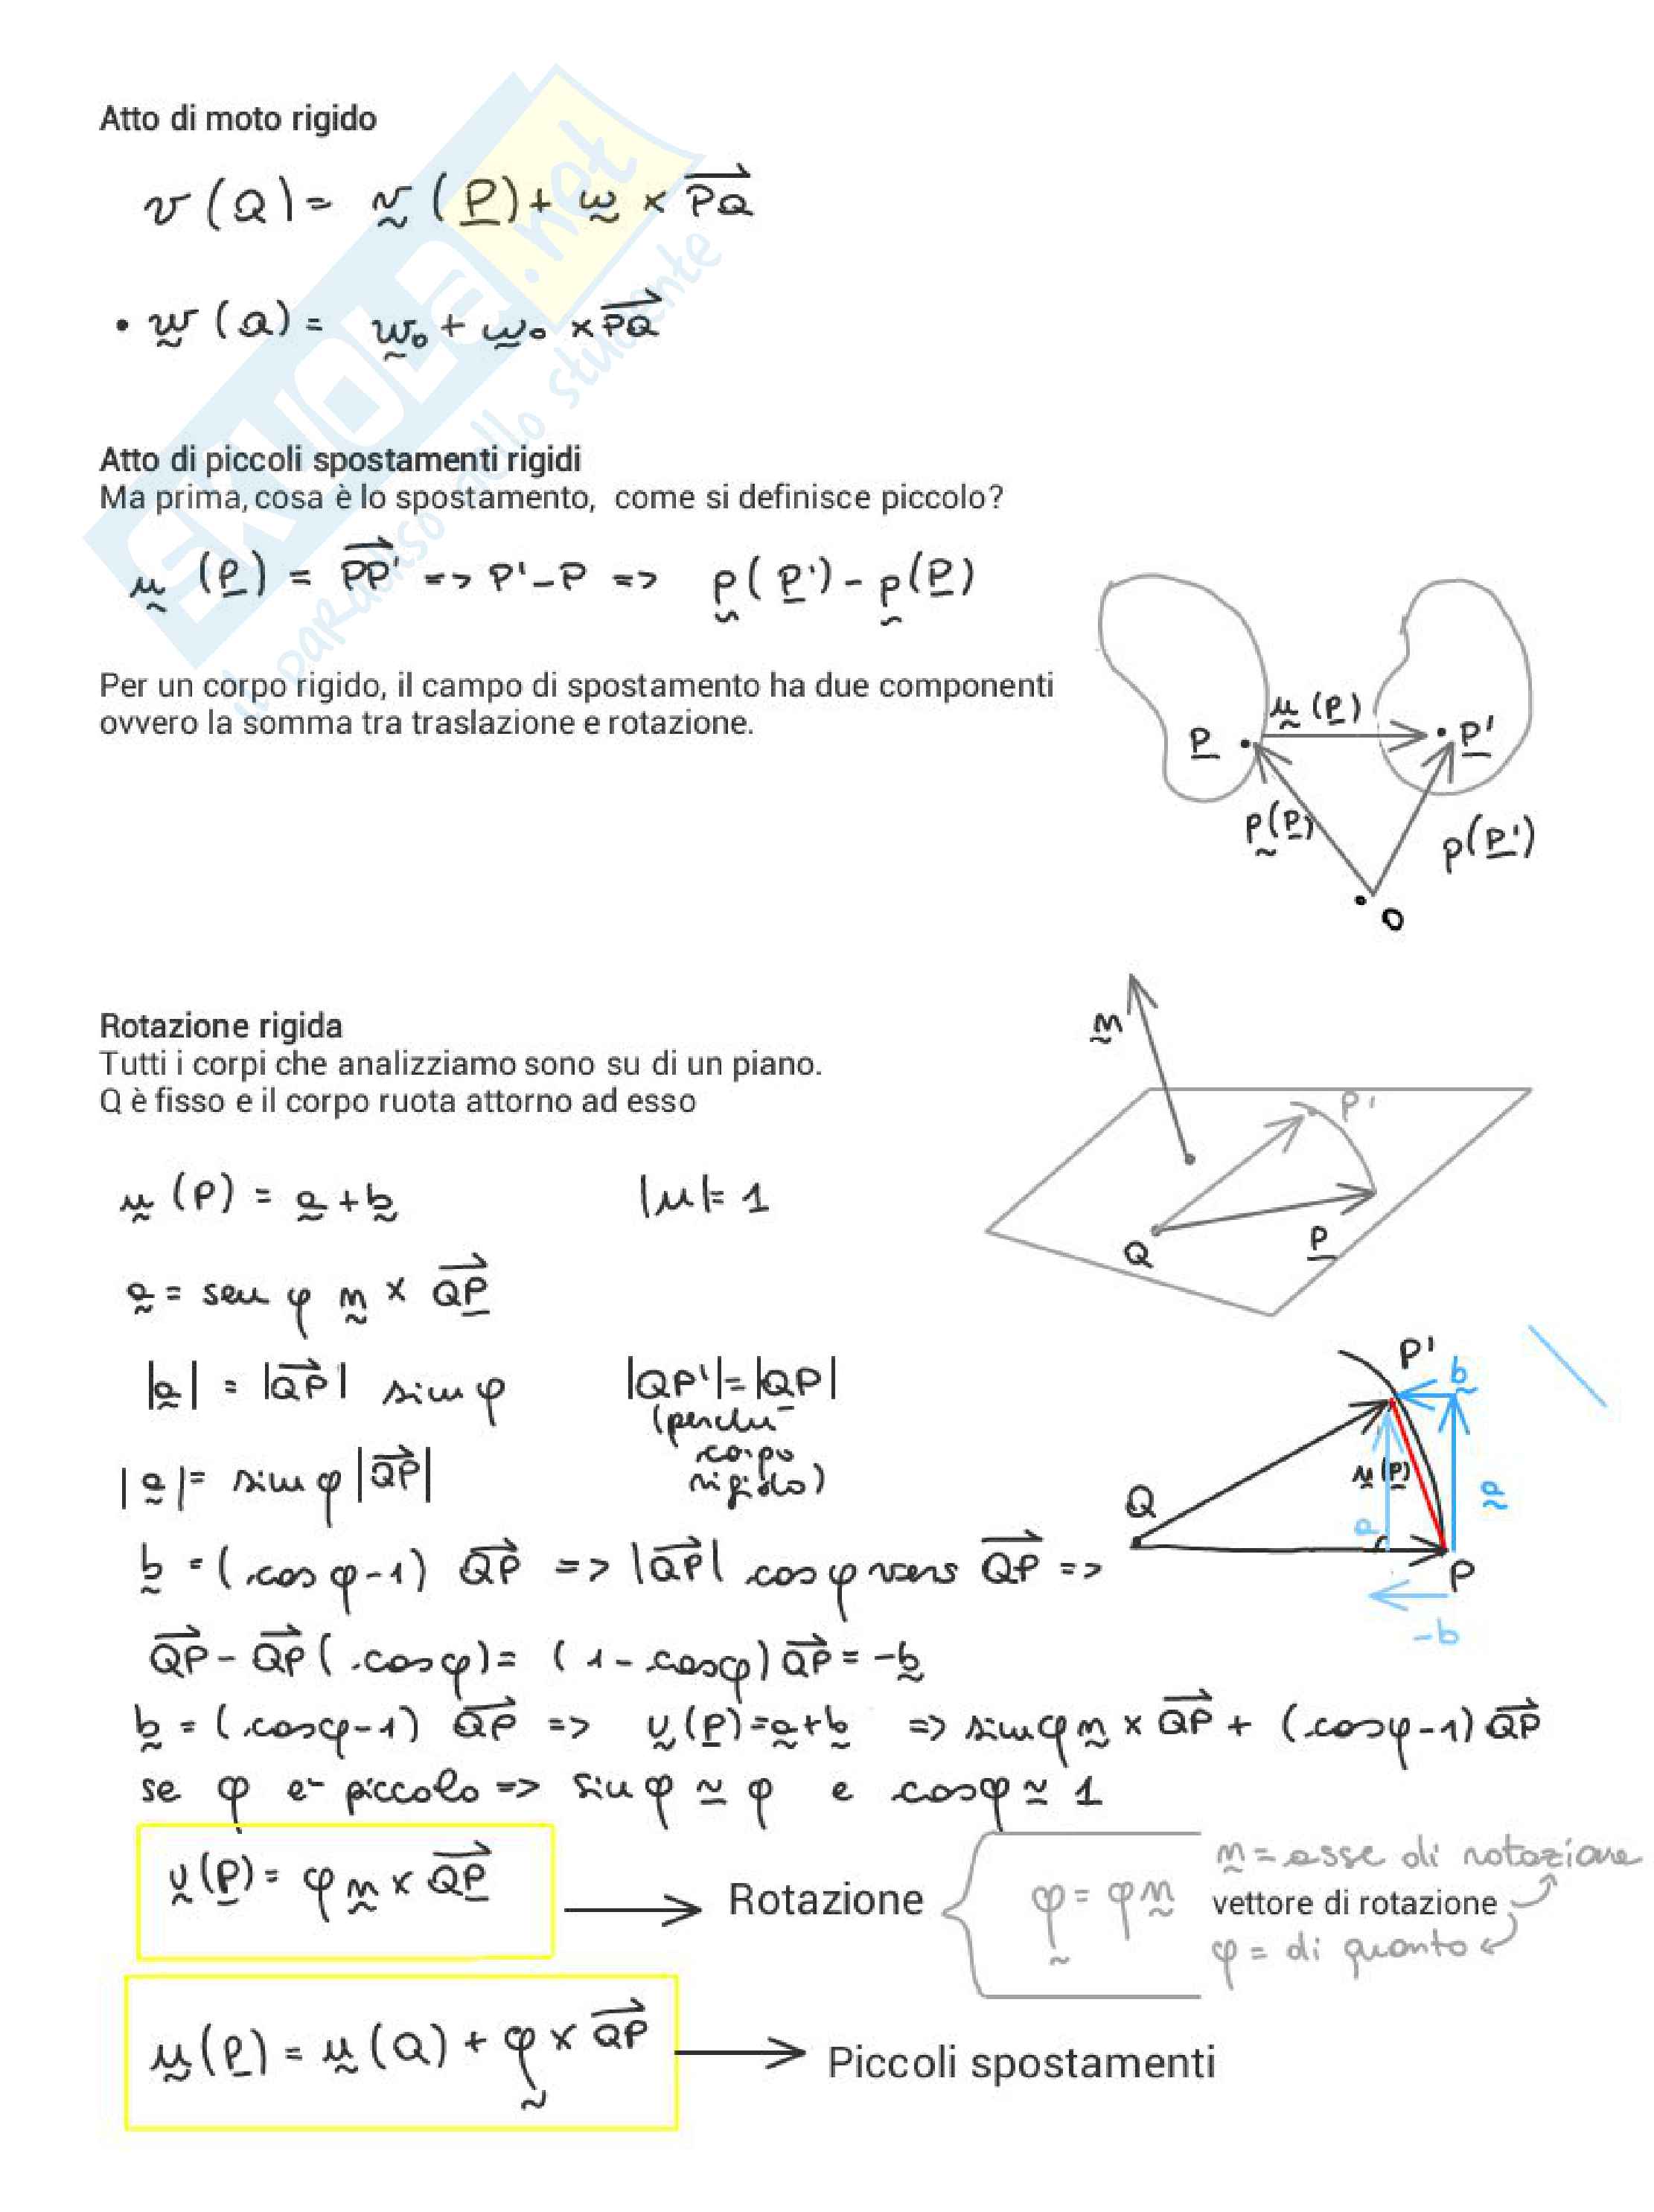 Atto di moto rigido
v (Q) = v (P) + ω × PQ
• w (Q) = w₀ + ω₀ × PQ
SKUOLA.net
il paradiso dello studente
Atto di piccoli spostamenti rigidi
Ma prima, cosa è lo spostamento, come si definisce piccolo?
u (P) = PP' => P'-P => p(P') - p(P)
Per un corpo rigido, il campo di spostamento ha due componenti
ovvero la somma tra traslazione e rotazione.
u (P)
P
P'
p(P)
p(P')
O
Rotazione rigida
Tutti i corpi che analizziamo sono su di un piano.
Q è fisso e il corpo ruota attorno ad esso
m
P'
Q
P
u (P) = a + b |u|= 1
a = sen φ m × QP
|a| = |QP| sin φ |QP'|=|QP|
(perchè
corpo
rigido)
|a|= sin φ |QP|
P'
b
u(P)
a
a
Q
P
-b
b = (cos φ-1) QP => |QP| cos φ vers QP =>
QP - QP (cosφ) = (1-cosφ) QP = -b
b = (cosφ-1) QP => u(P)=a+b => sinφ m × QP + (cosφ-1) QP
se φ è piccolo => sin φ ≃ φ e cosφ ≃ 1
u(P) = φ m × QP
Rotazione
φ = φm
m = asse di rotazione
vettore di rotazione
φ = di quanto
u(P) = u(Q) + φ × QP
Piccoli spostamenti